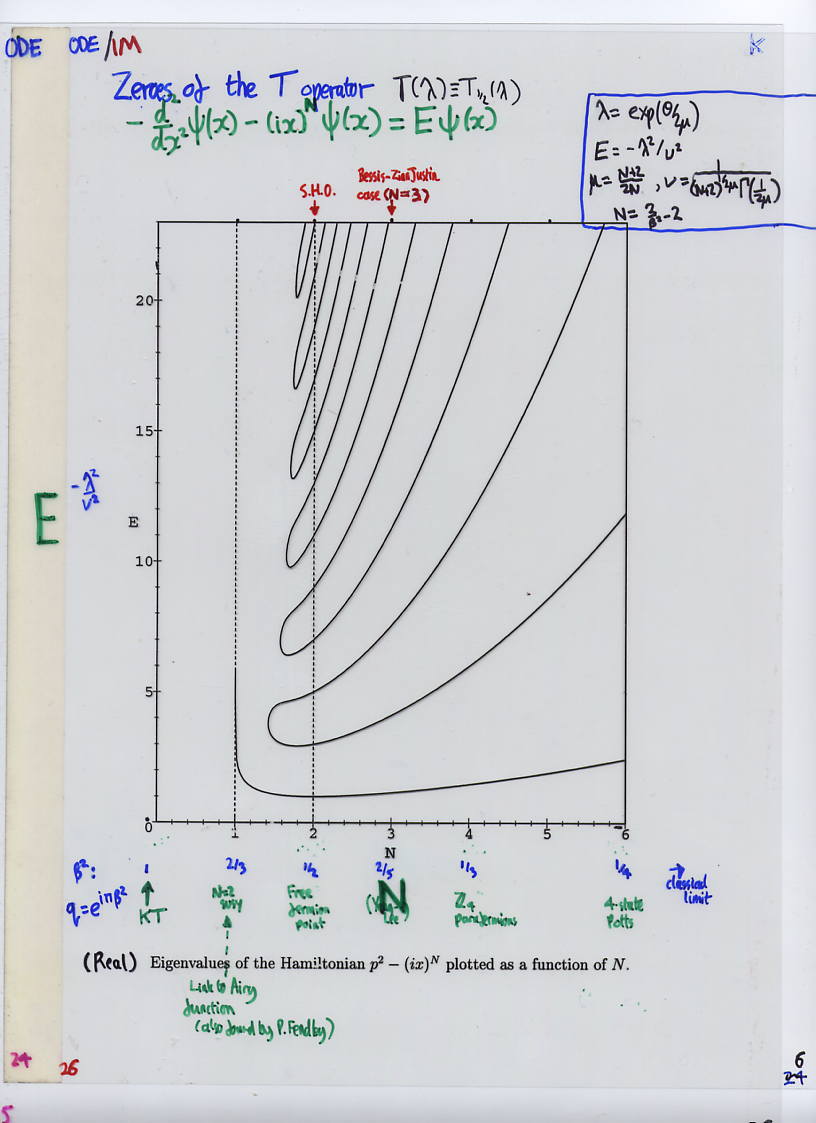 ODE ODE/IM K
Zeroes of the T operator T(λ)≡T₁/₂(λ)
- d²/dx² ψ(x) - (ix)ᴺ ψ(x) = E ψ(x)
λ = exp(θ/2μ)
E = -λ²/ν²
μ = N+2/2N , ν = 1/(N+2)^(1/2μ) Γ(1/2μ)
N = 2/β² - 2
S.H.O.
Bessis-Zinn Justin
case (N=3)
20
15
- λ²/ν²
E
E
10
5
0
1 2 3 4 5 6
N
β²: 1 2/3 1/2 2/5 1/3 1/4 → classical
limit
q=e^iπβ²
KT
N=2
susy
Free
fermion
point
N
Z₄
parafermions
4-state
Potts
(Real) Eigenvalues of the Hamiltonian p² − (ix)ᴺ plotted as a function of N.
Link to Airy
function
(also found by P. Fendley)
24 26
6
24
5